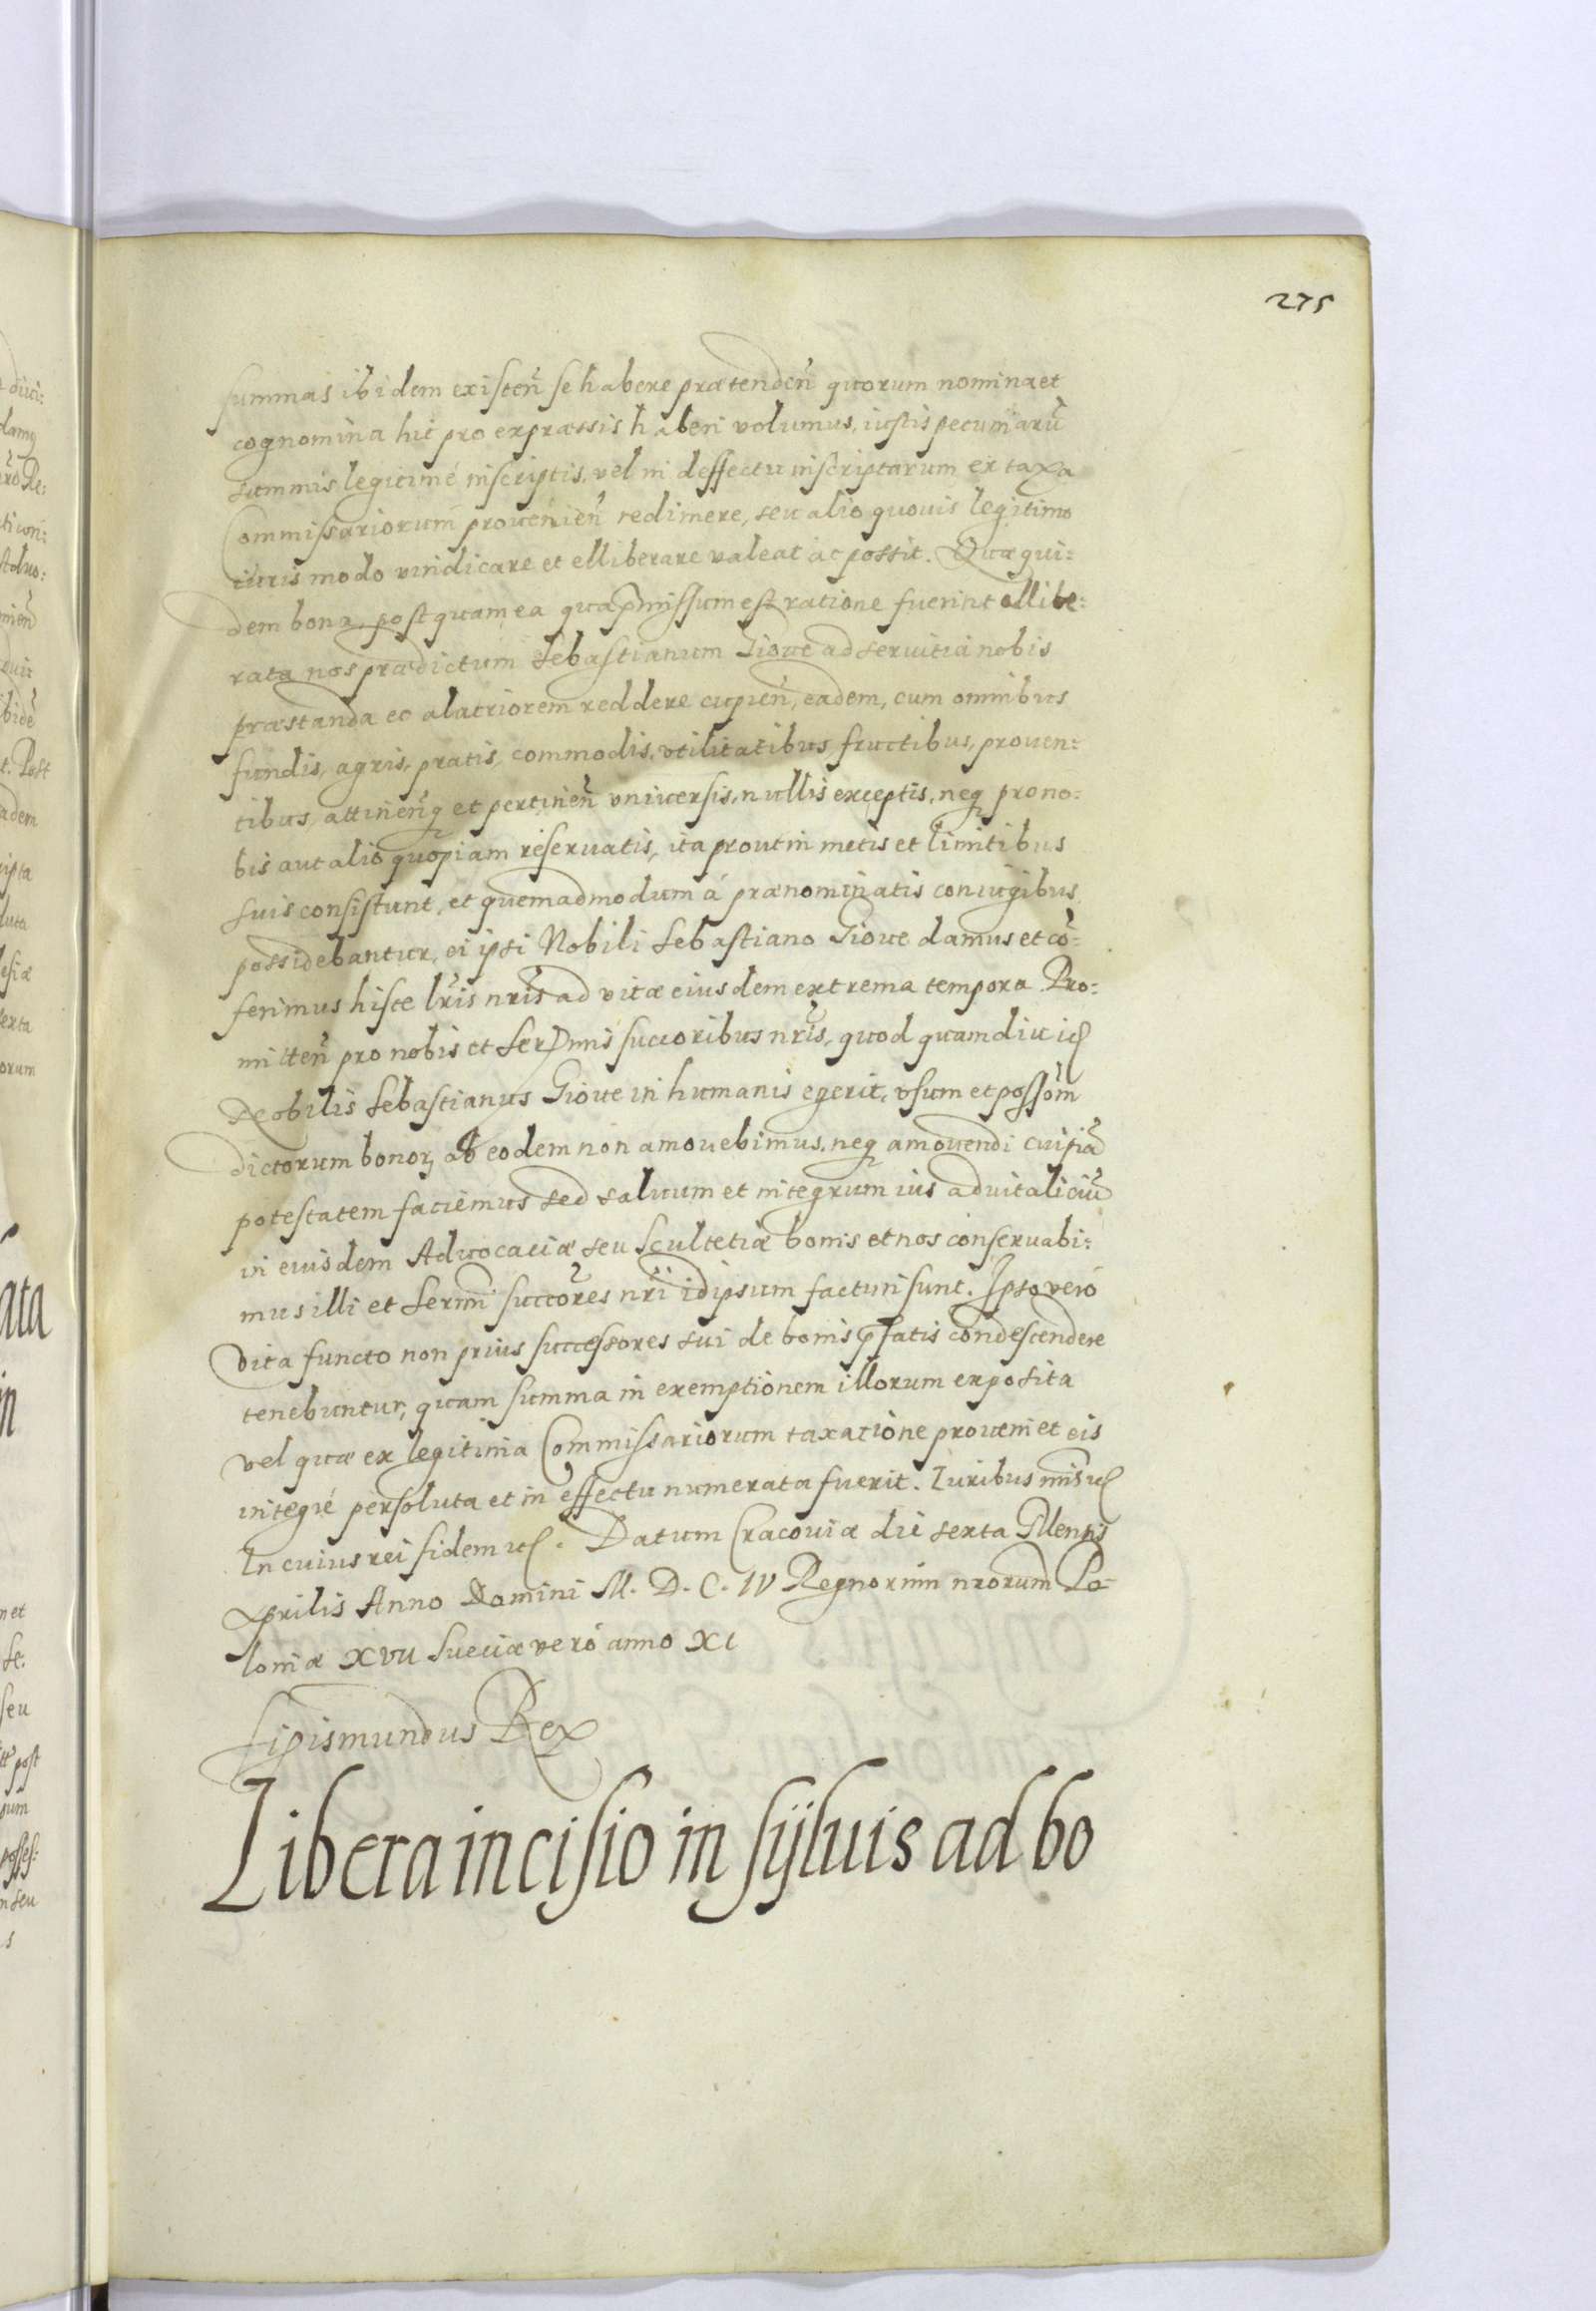 275
summas ibidem existeñ se habere prætendeñ quorum nomina et
cognomina hic pro expræssis haberi volumus, iustis pecuniarũ
summis legitimé inscriptis, vel in deffectu inscriptarum ex taxa
Commissariorum prouenieñ redimere, seu alio quouis legitimo
iuris modo vindicare et elliberare valeat ac possit. Quæ qui:
dem bona, postquam ea qua p̃missum est ratione fuerint ellibe:
rata nos prædictum Sebastianum Gioue ad seruitia nobis
præstanda eo alacriorem reddere cupieñ, eadem, cum omnibus
fundis, agris, pratis, commodis, vtilitatibus, fructibus, prouen:
tibus, attineñq et pertineñ vniuersis, nullis exceptis, neq pro no:
bis aut alio quopiam reseruatis, ita prout in metis et limitibus
suis consistunt, et quemadmodum á prænominatis coniugibus
possidebantur, ei ipsi Nobili Sebastiano Gioue damus et cõ:
ferimus hisce lr̃is nr̃is ad vitæ eiusdem extrema tempora. Pro:
mitteñ pro nobis et Ser͂mis succoribus nr̃is, quod quamdiu id
Nobilis Sebastianus Gioue in humanis egerit, vsum et possõm
dictorum bonoꝝ ab eodem non amouebimus, neq amouendi cuipiã
potestatem faciemus sed saluum et integrum ius aduitaliciũ
in eiusdem Aduocaciæ seu Scultetiæ bonis et nos conseruabi:
mus illi et Sermi succõres nr̃i idipsum facturi sunt. Ipso veró
vita functo non prius successores sui de bonis p̃fatis condescendere
tenebuntur, quam summa in exemptionem illorum exposita
vel quæ ex legitima Commissariorum taxatione proueniet eis
integré persoluta et in effectu numerata fuerit. Iuribus nr̃is etc
In cuius rei fidem etc. Datum Cracouiæ die sexta Mensis
Aprilis Anno Domini M. D. C. IV Regnorum nrorum Po:
loniæ XVII Sueciæ veró anno XI
Sigismundus Rex
Libera incisio in syluis ad bo